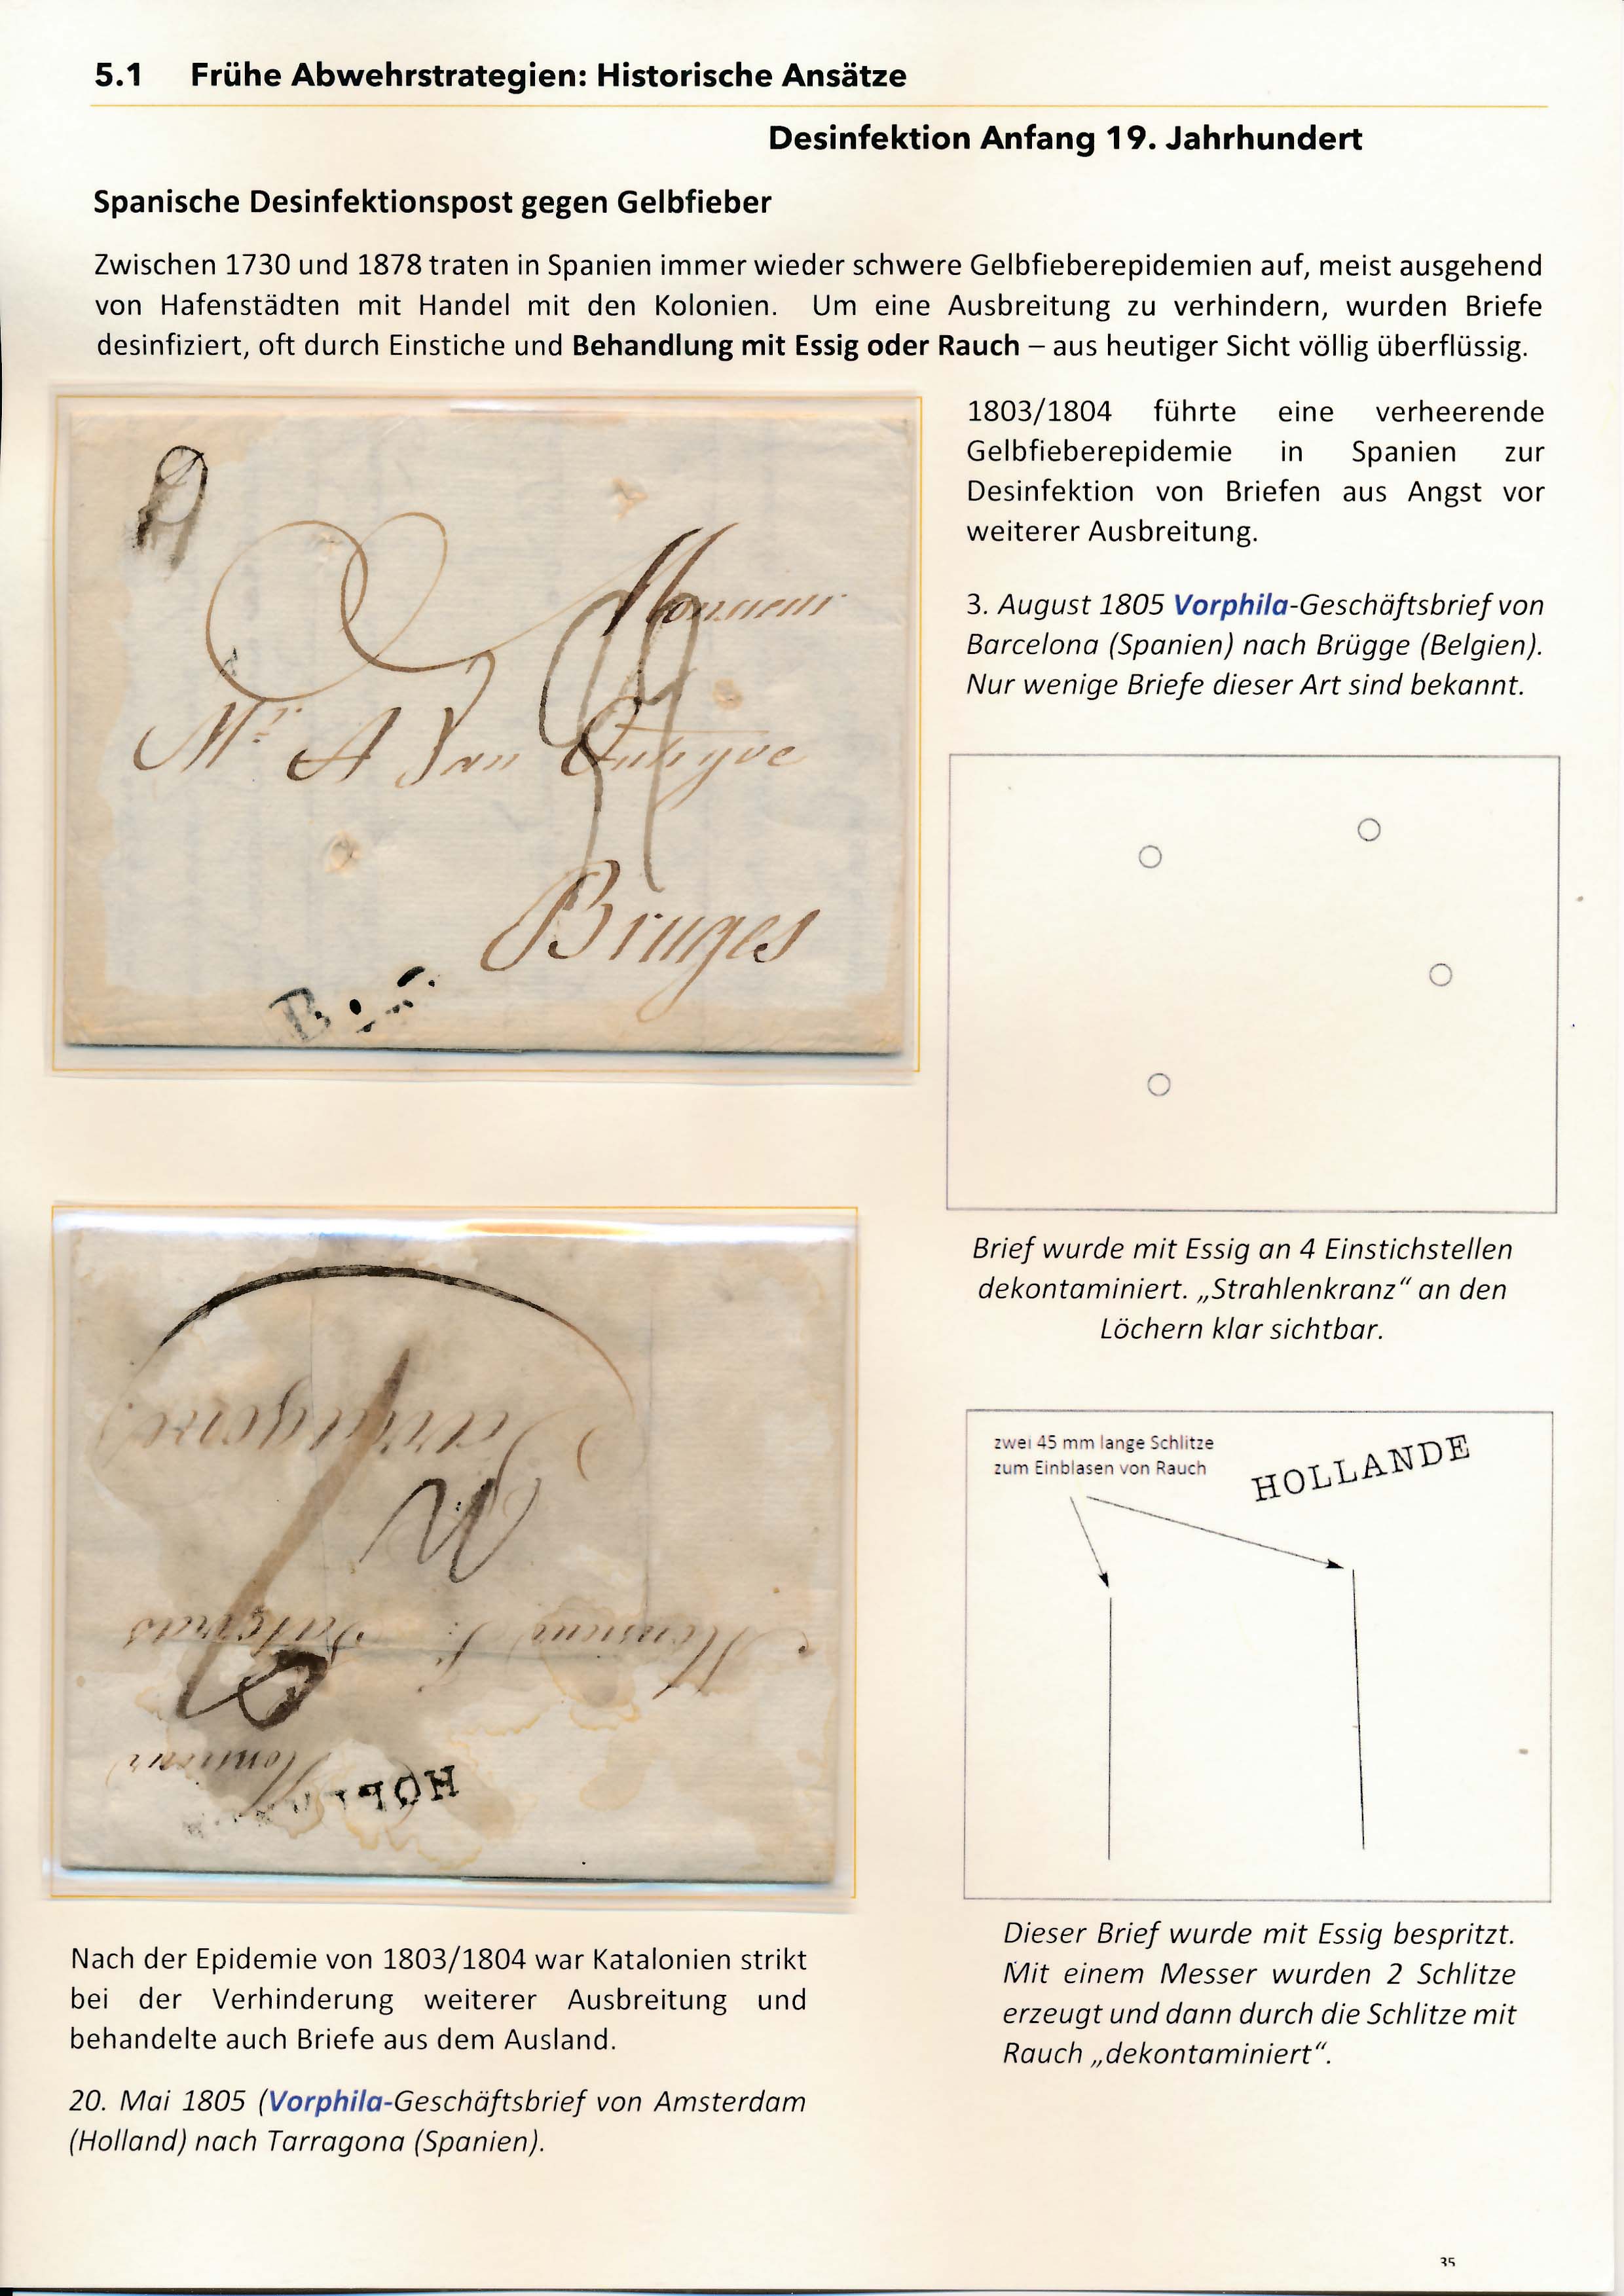 5.1 Frühe Abwehrstrategien: Historische Ansätze
Desinfektion Anfang 19. Jahrhundert
Spanische Desinfektionspost gegen Gelbfieber
Zwischen 1730 und 1878 traten in Spanien immer wieder schwere Gelbfieberepidemien auf, meist ausgehend
von Hafenstädten mit Handel mit den Kolonien. Um eine Ausbreitung zu verhindern, wurden Briefe
desinfiziert, oft durch Einstiche und Behandlung mit Essig oder Rauch – aus heutiger Sicht völlig überflüssig.
1803/1804 führte eine verheerende
Gelbfieberepidemie in Spanien zur
Desinfektion von Briefen aus Angst vor
weiterer Ausbreitung.
3. August 1805 Vorphila-Geschäftsbrief von
Barcelona (Spanien) nach Brügge (Belgien).
Nur wenige Briefe dieser Art sind bekannt.
Monsieur
Mr A Van
Bruges
B
Brief wurde mit Essig an 4 Einstichstellen
dekontaminiert. „Strahlenkranz“ an den
Löchern klar sichtbar.
Monsieur
Monsieur
HOL
zwei 45 mm lange Schlitze
zum Einblasen von Rauch
HOLLANDE
Dieser Brief wurde mit Essig bespritzt.
Mit einem Messer wurden 2 Schlitze
erzeugt und dann durch die Schlitze mit
Rauch „dekontaminiert“.
Nach der Epidemie von 1803/1804 war Katalonien strikt
bei der Verhinderung weiterer Ausbreitung und
behandelte auch Briefe aus dem Ausland.
20. Mai 1805 (Vorphila-Geschäftsbrief von Amsterdam
(Holland) nach Tarragona (Spanien).
35